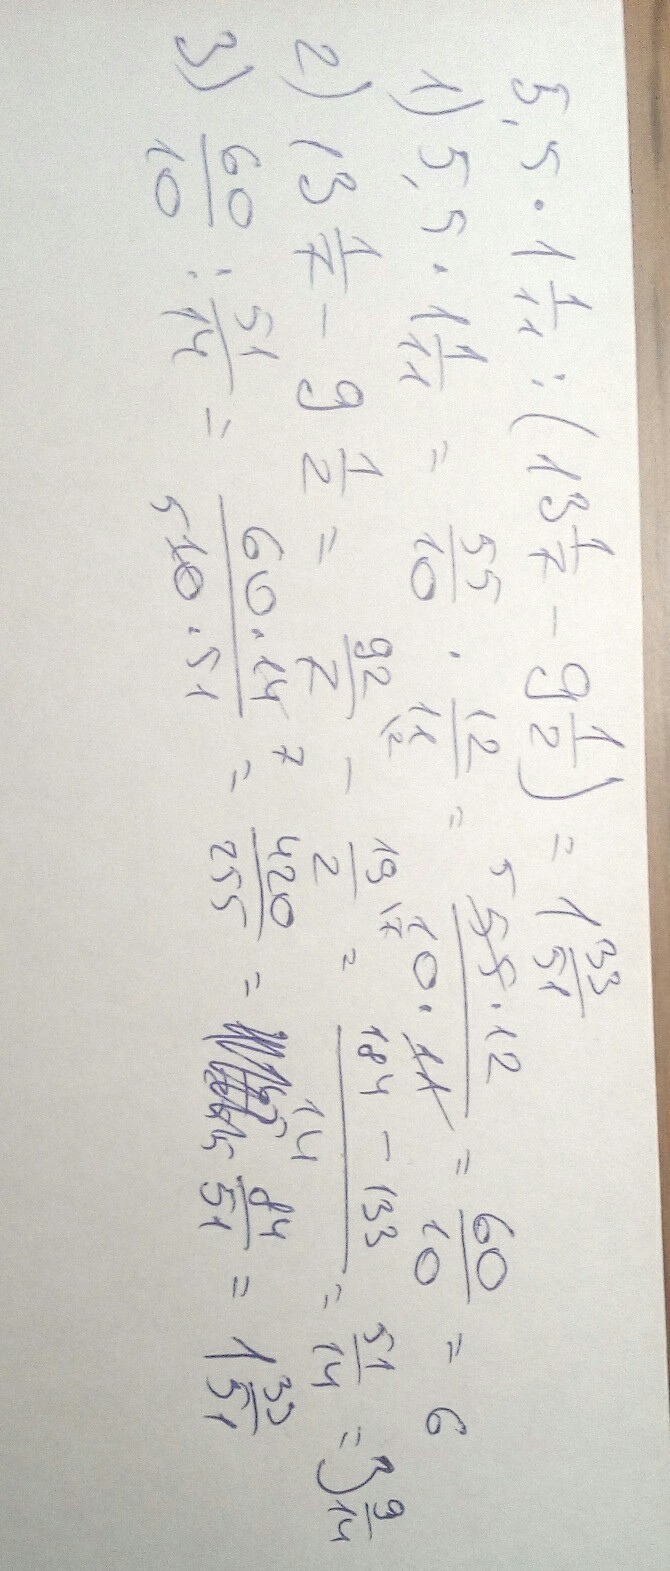 5,5 · 1 1/11 : (13 1/7 - 9 1/2) = 1 33/51
1) 5,5 · 1 1/11 = 55/10 · 12/11 = 5 55·12/10·11 = 60/10 = 6
2) 13 1/7 - 9 1/2 = 92/7 \2 - 19/2 \7 = 184 - 133/14 = 51/14 = 3 9/14
3) 60/10 : 51/14 = 60·14 7/5 10·51 = 420/255 = 84/51 = 1 33/51